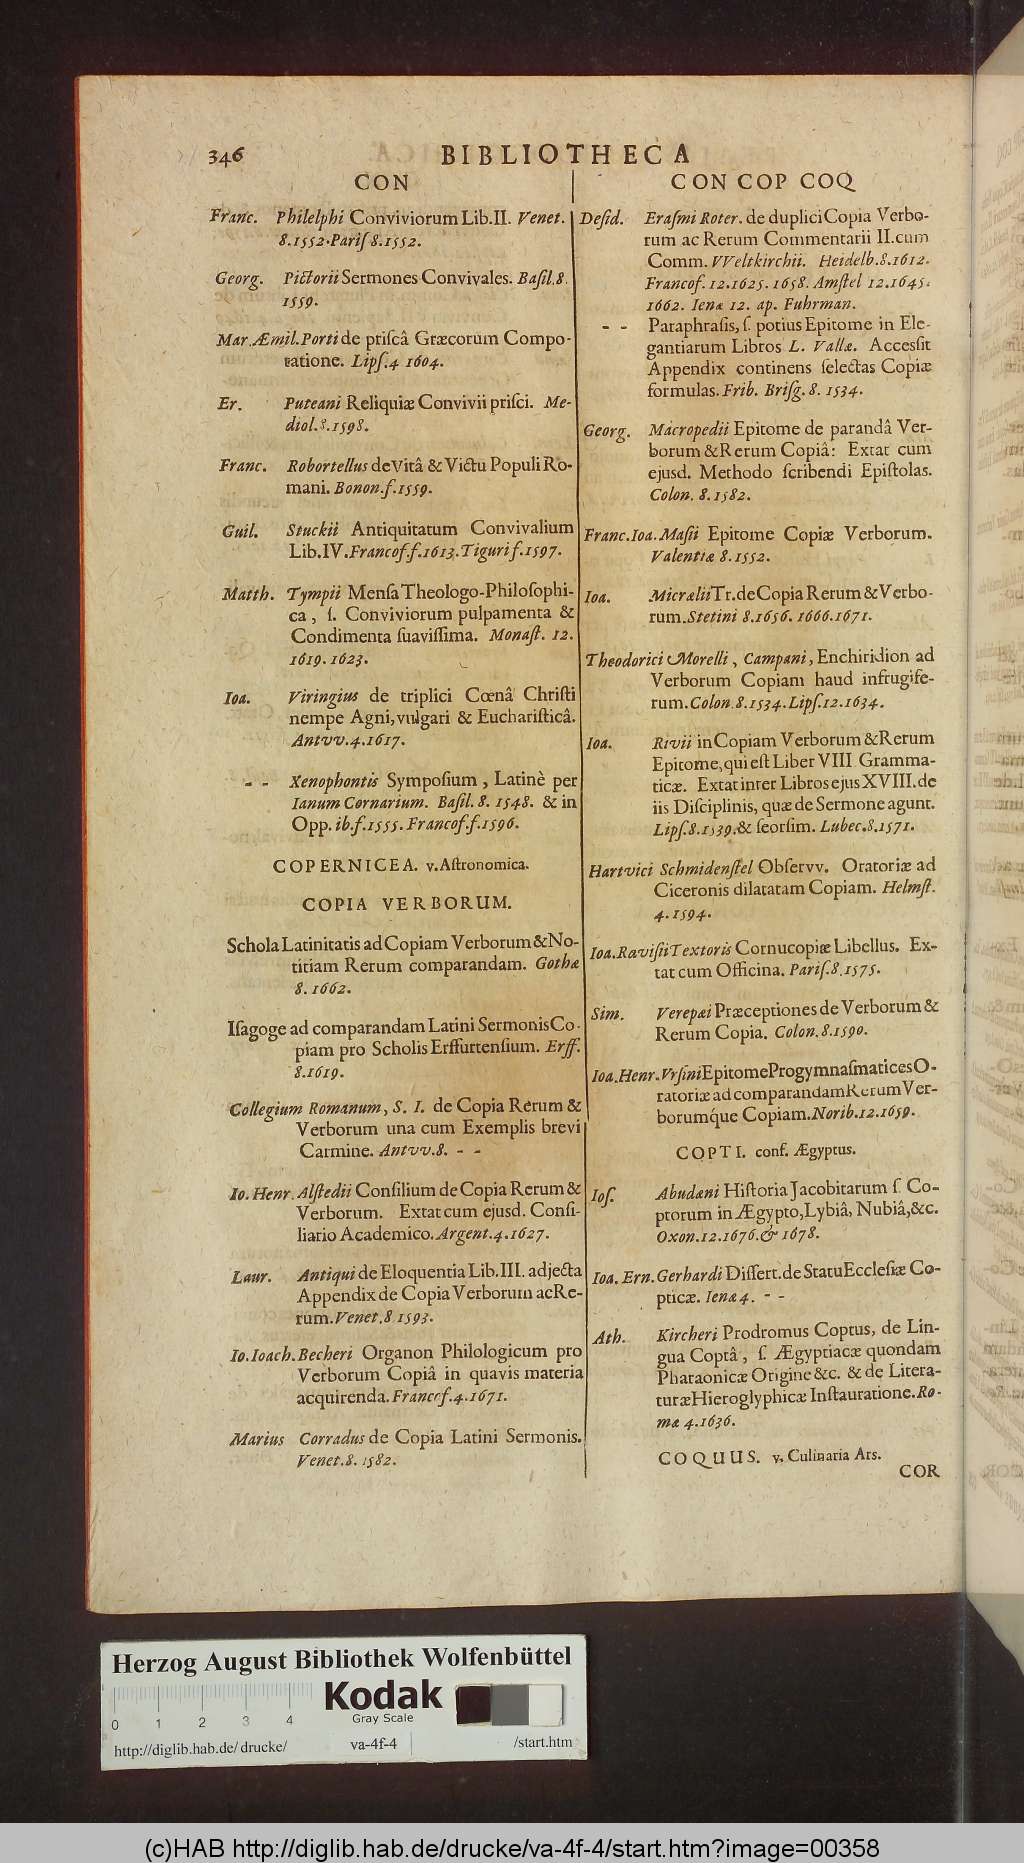 346 BIBLIOTHECA
CON
Franc. Philelphi Conviviorum Lib. II. Venet.
8. 1552. Pariſ 8. 1552.
Georg. Pictorii Sermones Convivales. Baſil. 8.
1559.
Mar. Æmil. Porti de priſcâ Græcorum Compo-
ratione. Lipſ. 4 1604.
Er. Puteani Reliquiæ Convivii priſci. Me-
diol. 8. 1598.
Franc. Robortellus de Vitâ & Victu Populi Ro-
mani. Bonon. f. 1559.
Guil. Stuckii Antiquitatum Convivalium
Lib. IV. Francof. f. 1613. Tiguri f. 1597.
Matth. Tympii Menſa Theologo-Philoſophi-
ca, ſ. Conviviorum pulpamenta &
Condimenta ſuaviſſima. Monaſt. 12.
1619. 1623.
Ioa. Viringius de triplici Cœnâ Chriſti
nempe Agni, vulgari & Euchariſticâ.
Antvv. 4. 1617.
- - Xenophontis Sympoſium, Latinè per
Ianum Cornarium. Baſil. 8. 1548. & in
Opp. ib. f. 1555. Francof. f. 1596.
COPERNICEA. v. Aſtronomica.
COPIA VERBORUM.
Schola Latinitatis ad Copiam Verborum & No-
titiam Rerum comparandam. Gothæ
8. 1662.
Iſagoge ad comparandam Latini Sermonis Co-
piam pro Scholis Erffurtenſium. Erff.
8. 1619.
Collegium Romanum, S. I. de Copia Rerum &
Verborum una cum Exemplis brevi
Carmine. Antvv. 8. - -
Io. Henr. Alſtedii Conſilium de Copia Rerum &
Verborum. Extat cum ejusd. Conſi-
liario Academico. Argent. 4. 1627.
Laur. Antiqui de Eloquentia Lib. III. adjecta
Appendix de Copia Verborum ac Re-
rum. Venet. 8 1593.
Io. Ioach. Becheri Organon Philologicum pro
Verborum Copiâ in quavis materia
acquirenda. Francof. 4. 1671.
Marius Corradus de Copia Latini Sermonis.
Venet. 8. 1582.
CON COP COQ
Deſid. Eraſmi Roter. de duplici Copia Verbo-
rum ac Rerum Commentarii II. cum
Comm. VVeltkirchii. Heidelb. 8. 1612.
Francof. 12. 1625. 1658. Amſtel 12. 1645.
1662. Ienæ 12. ap. Fuhrman.
- - Paraphraſis, ſ. potius Epitome in Ele-
gantiarum Libros L. Vallæ. Acceſſit
Appendix continens ſelectas Copiæ
formulas. Frib. Briſg. 8. 1534.
Georg. Macropedii Epitome de parandâ Ver-
borum & Rerum Copiâ: Extat cum
ejusd. Methodo ſcribendi Epiſtolas.
Colon. 8. 1582.
Franc. Ioa. Maſii Epitome Copiæ Verborum.
Valentiæ 8. 1552.
Ioa. Micrælii Tr. de Copia Rerum & Verbo-
rum. Stetini 8. 1656. 1666. 1671.
Theodorici Morelli, Campani, Enchiridion ad
Verborum Copiam haud infrugife-
rum. Colon. 8. 1534. Lipſ. 12. 1634.
Ioa. Rivii in Copiam Verborum & Rerum
Epitome, qui eſt Liber VIII Gramma-
ticæ. Extat inter Libros ejus XVIII. de
iis Diſciplinis, quæ de Sermone agunt.
Lipſ. 8. 1539. & ſeorſim. Lubec. 8. 1571.
Hartvici Schmidenſtel Obſervv. Oratoriæ ad
Ciceronis dilatatam Copiam. Helmſt.
4. 1594.
Ioa. Raviſii Textoris Cornucopiæ Libellus. Ex-
tat cum Officina. Pariſ. 8. 1575.
Sim. Verepæi Præceptiones de Verborum &
Rerum Copia. Colon. 8. 1590.
Ioa. Henr. Vrſini Epitome Progymnaſmatices O-
ratoriæ ad comparandam Rerum Ver-
borumq́ue Copiam. Norib. 12. 1659.
COPTI. conf. Ægyptus.
Ioſ. Abudani Hiſtoria Jacobitarum ſ. Co-
ptorum in Ægypto, Lybiâ, Nubiâ, &c.
Oxon. 12. 1676. & 1678.
Ioa. Ern. Gerhardi Diſſert. de Statu Eccleſiæ Co-
pticæ. Ienæ 4. - -
Ath. Kircheri Prodromus Coptus, de Lin-
gua Coptâ, ſ. Ægyptiacæ quondam
Pharaonicæ Origine &c. & de Litera-
turæ Hieroglyphicæ Inſtauratione. Ro-
mæ 4. 1636.
COQUUS. v. Culinaria Ars.
COR
Herzog August Bibliothek Wolfenbüttel
Kodak
Gray Scale
0 1 2 3 4
http://diglib.hab.de/drucke/ va-4f-4 /start.htm
(c)HAB http://diglib.hab.de/drucke/va-4f-4/start.htm?image=00358